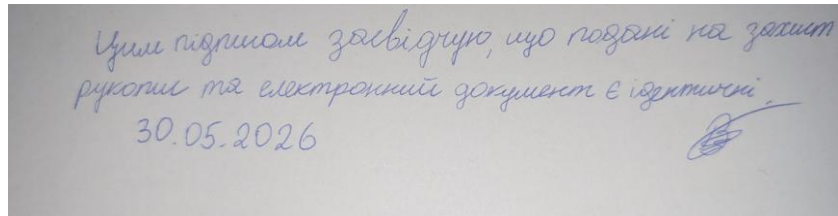 Цим підписом засвідчую, що подані на захист
рукопис та електронний документ є ідентичні.
30.05.2026